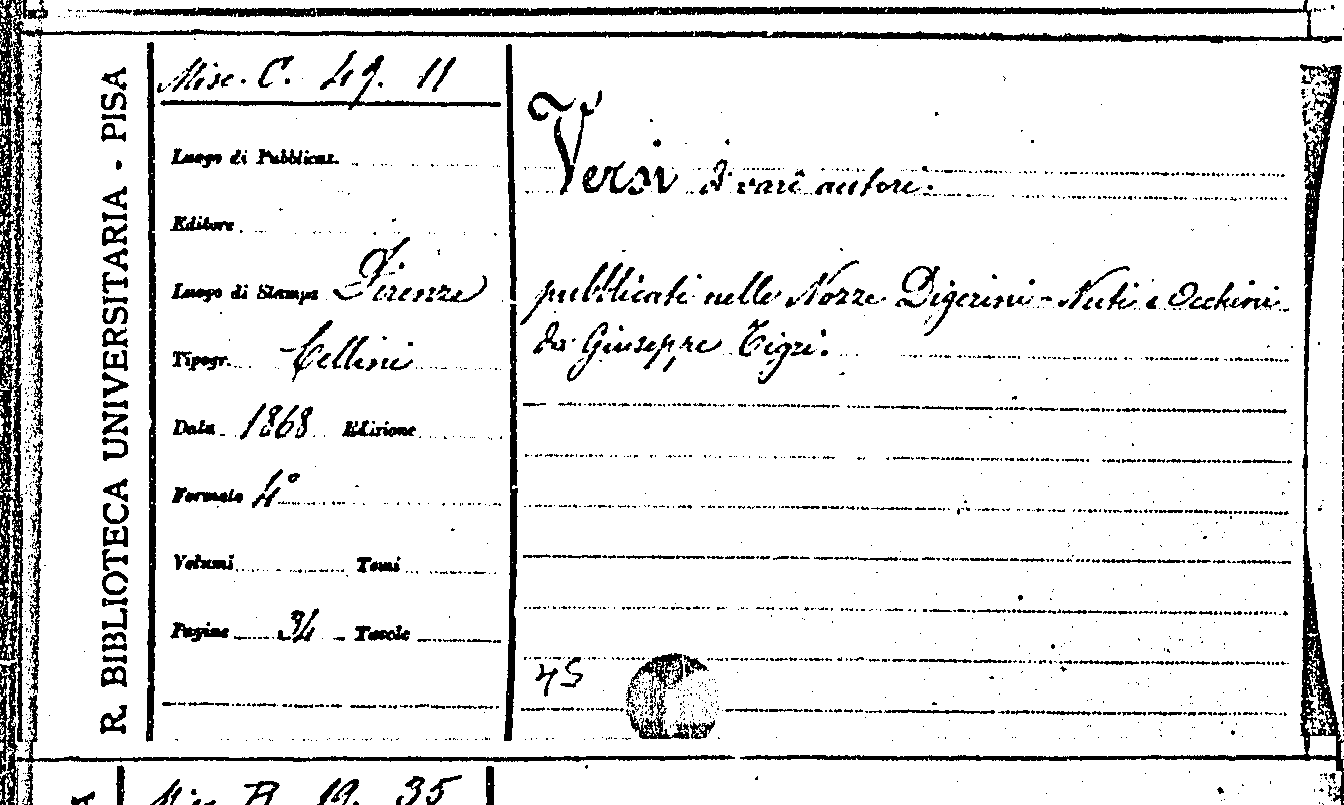 R. BIBLIOTECA UNIVERSITARIA - PISA
Misc. C. 49. 11
Luogo di Pubblicaz.
Editore
Luogo di Stampa Firenze
Tipogr. Cellini
Data 1868 Edizione
Formato 4°
Volumi Tomi
Pagine 34 Tavole
Versi di vari autori.
pubblicati nelle Nozze Digerini-Nuti e Occhini
da Giuseppe Tigri.
45
19. 35